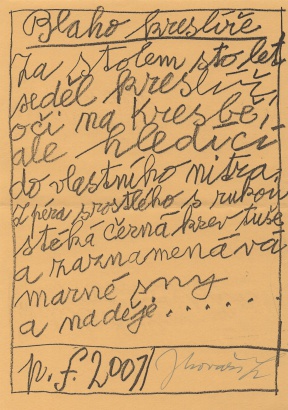 Blaho kreslíře
Za stolem sto let
seděl kreslíř,
oči na kresbě,
ale hledící
do vlastního nitra.
Z péra srostlého s rukou
stéká černá krev tuše
a zaznamenává
marné sny
a naděje.....
p.f. 2007/